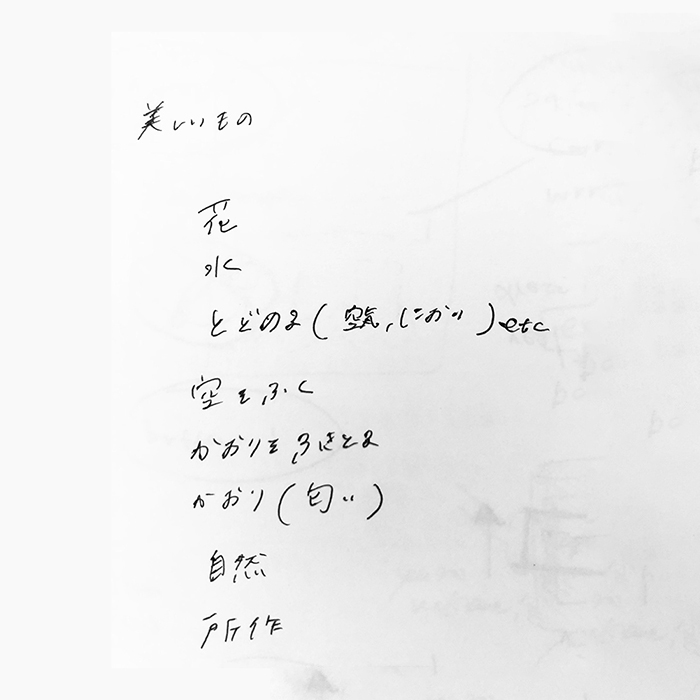 美しいもの
花
水
とどめる(空気,におい)etc
空をふく
かおりをふきとる
かおり(匂い)
自然
所作